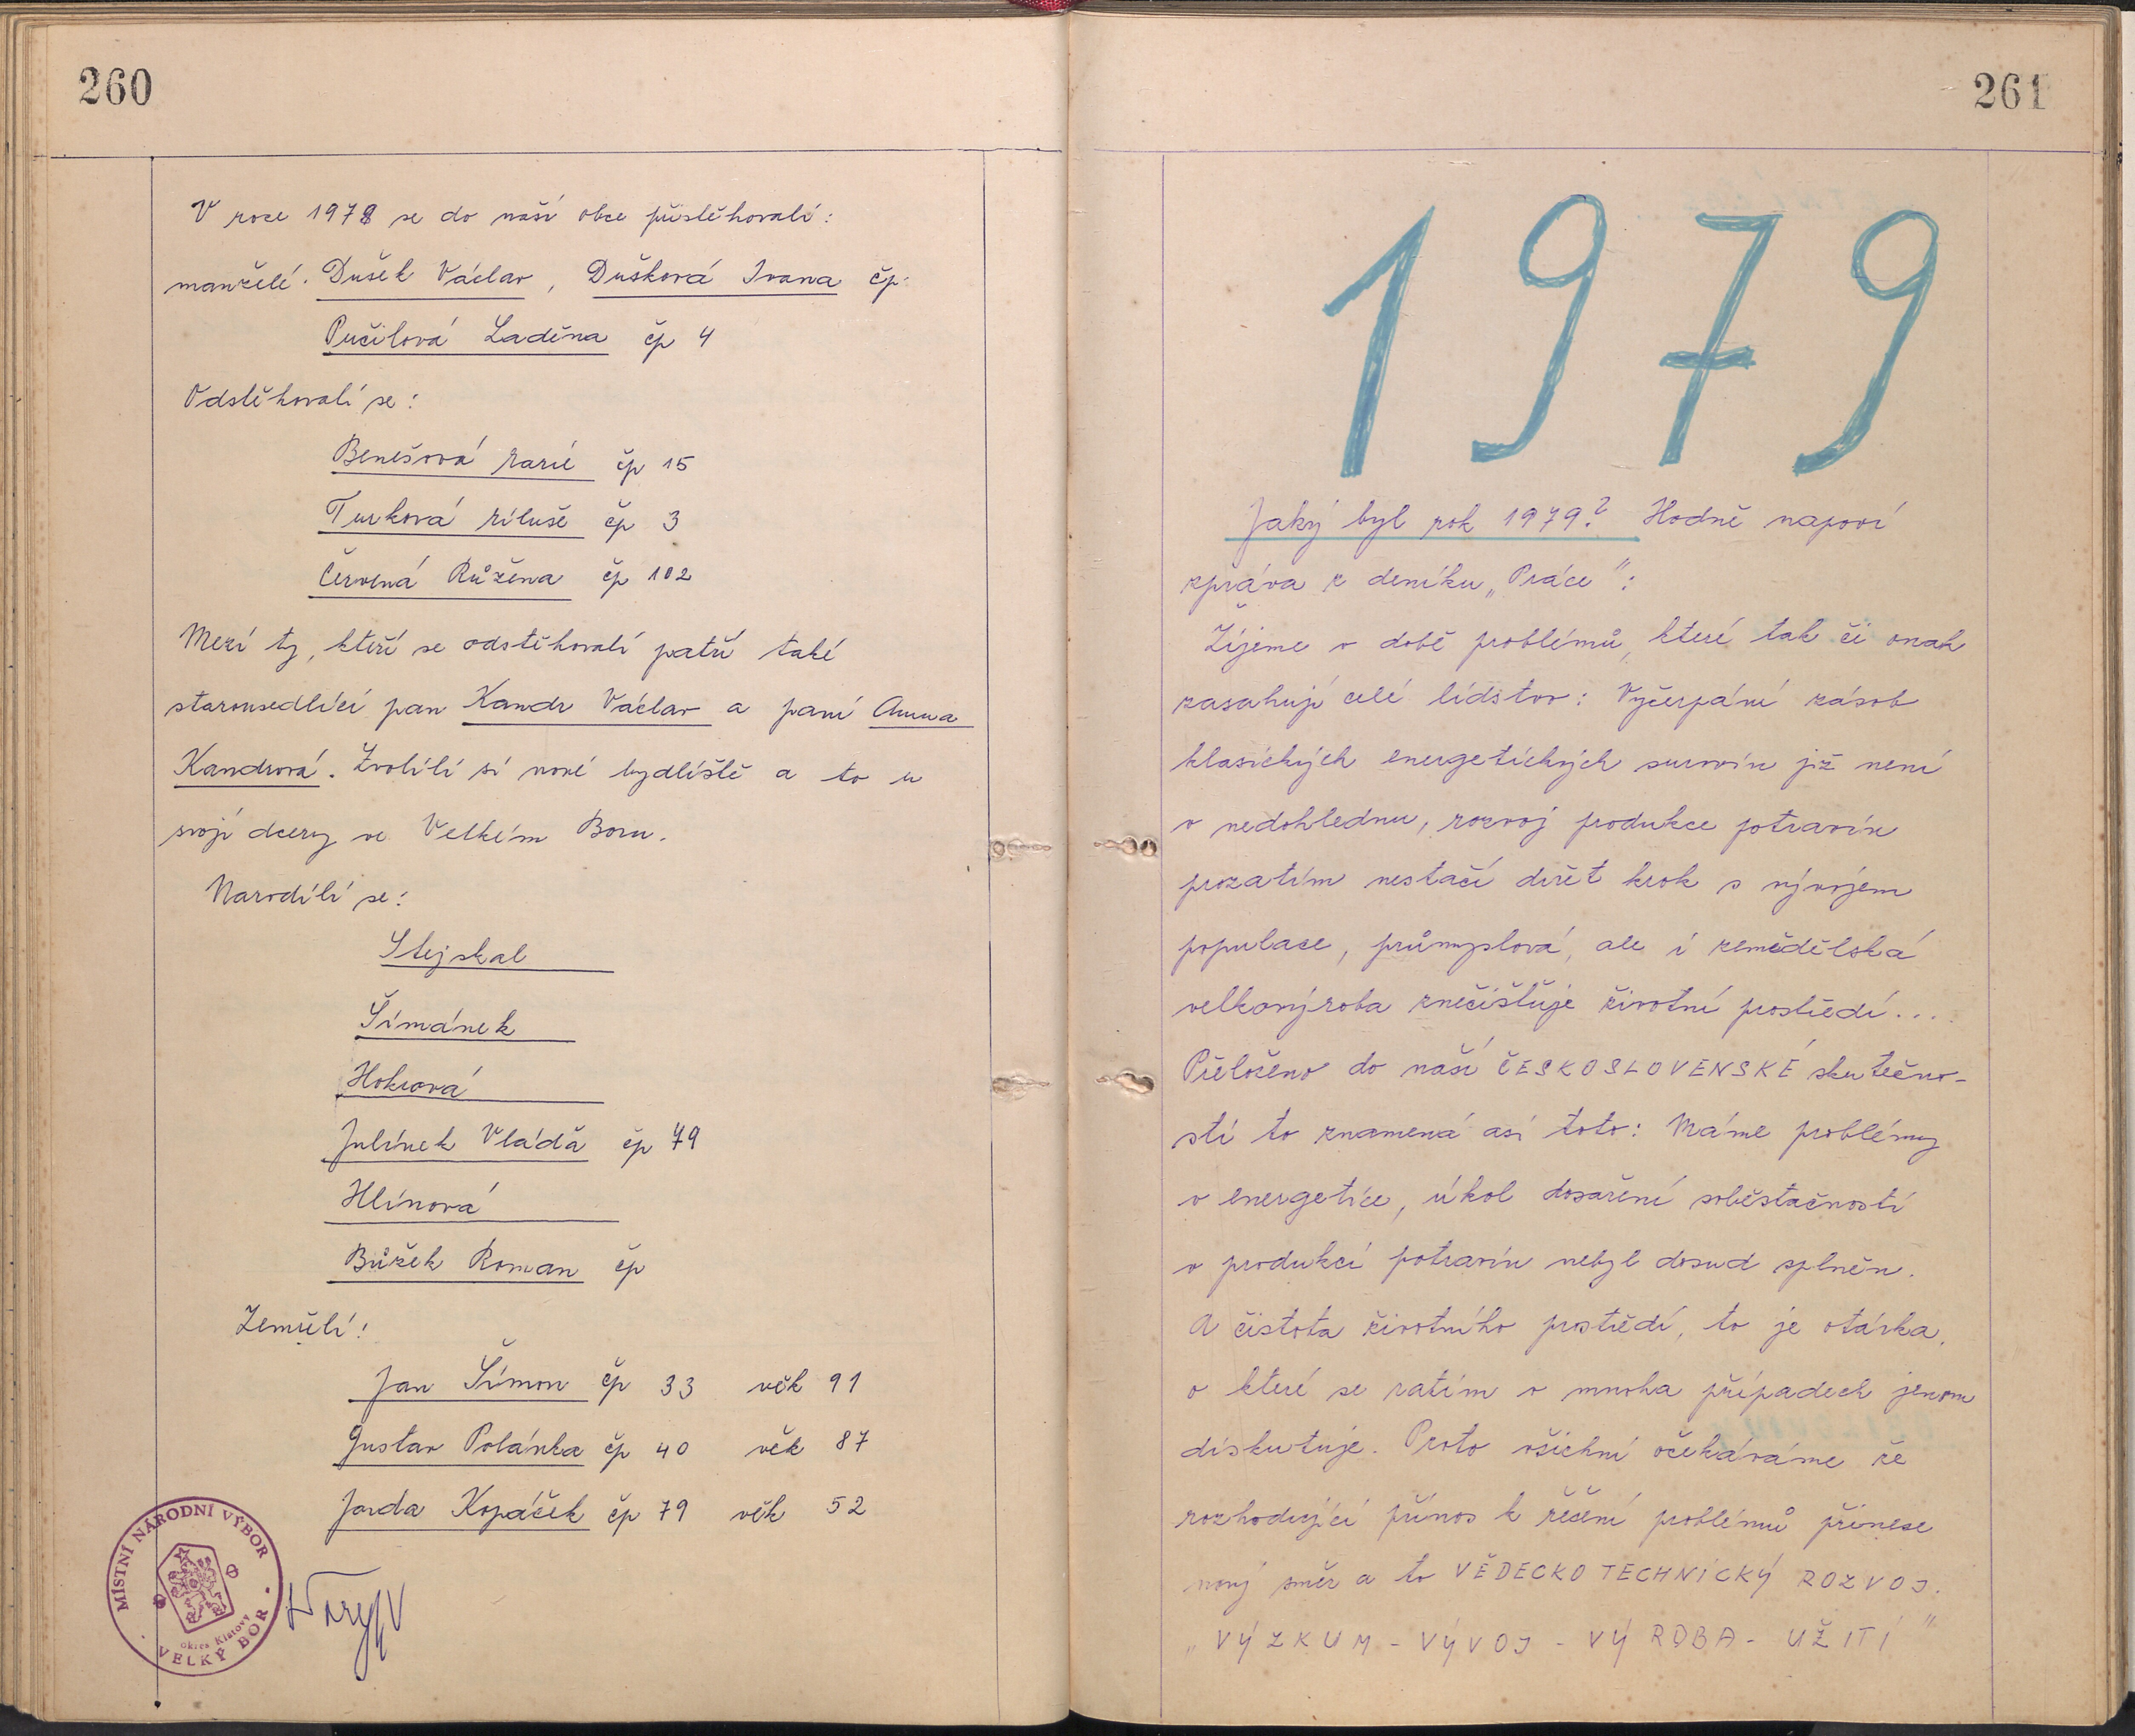 260
V roce 1978 se do naší obce přistěhovali:
manželé. Dušek Václav, Dušková Ivana čp.
Pučilová Laděna čp 4
Odstěhovali se:
Benešová Marie čp 15
Turková Miluše čp 3
Červená Růžena čp 102
Mezi ty, kteří se odstěhovali patří také
starousedlíci pan Kandr Václav a paní Anna
Kandrová. Zvolili si nové bydliště a to u
svojí dcery ve Velkém Boru.
Narodili se:
Stejskal
Šimánek
Hokrová
Julínek Vláďa čp 79
Hlinová
Bůžek Roman čp
Zemřeli:
Jan Šimon čp 33 věk 91
Gustav Polánka čp 40 věk 87
Jarda Kopáček čp 79 věk 52
MÍSTNÍ NÁRODNÍ VÝBOR
okres Klatovy
VELKÝ BOR
261
1979
Jaký byl rok 1979? Hodně napoví
zpráva z deníku „Práce":
Žijeme v době problémů, které tak či onak
zasahují celé lidstvo: Vyčerpání zásob
klasických energetických surovin již není
v nedohlednu, rozvoj produkce potravin
prozatím nestačí držet krok s vývojem
populace, průmyslová, ale i zemědělská
velkovýroba znečišťuje životní prostředí...
Přeloženo do naší ČESKOSLOVENSKÉ skutečno-
sti to znamená asi toto: Máme problémy
v energetice, úkol dosažení soběstačnosti
v produkci potravin nebyl dosud splněn.
A čistota životního prostředí, to je otázka,
o které se zatím v mnoha případech jenom
diskutuje. Proto všichni očekáváme že
rozhodující přínos k řešení problémů přinese
nový směr a to VĚDECKO TECHNICKÝ ROZVOJ.
„VÝZKUM - VÝVOJ - VÝROBA - UŽITÍ"